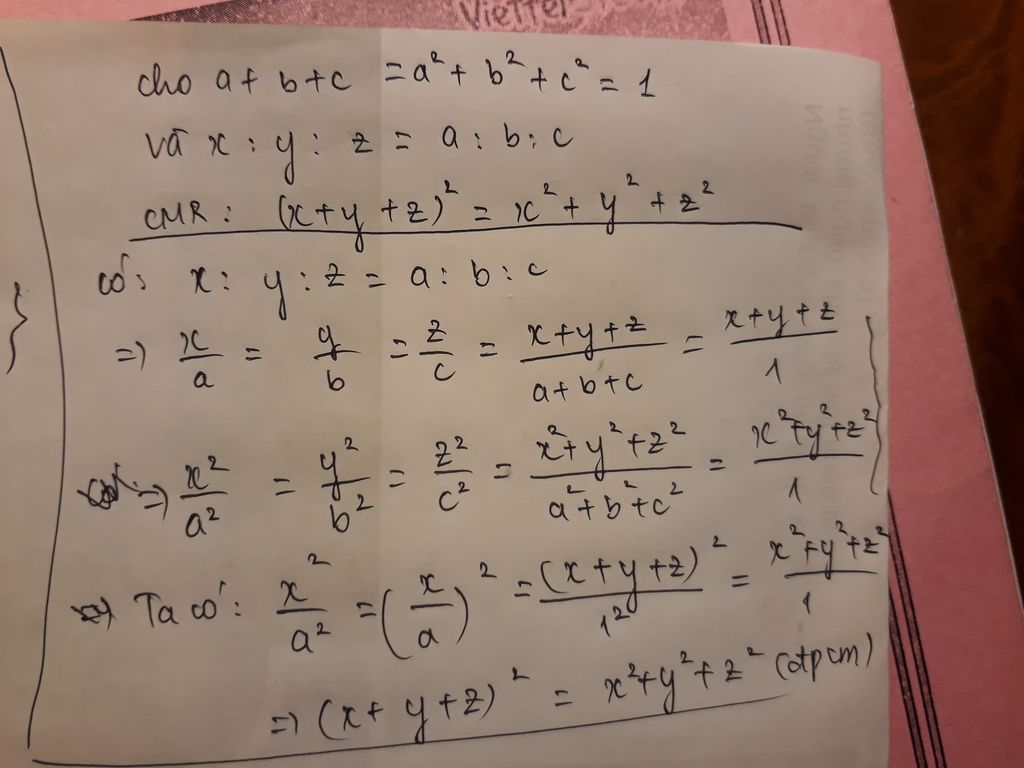 Viettel
cho a + b + c = a² + b² + c² = 1
và x : y : z = a : b : c
CMR : (x + y + z)² = x² + y² + z²
có: x : y : z = a : b : c
=) x/a = y/b = z/c = (x + y + z)/(a + b + c) = (x + y + z)/1
=) x²/a² = y²/b² = z²/c² = (x² + y² + z²)/(a² + b² + c²) = (x² + y² + z²)/1
Ta có: x²/a² = (x/a)² = (x + y + z)²/1² = (x² + y² + z²)/1
=) (x + y + z)² = x² + y² + z² (đpcm)